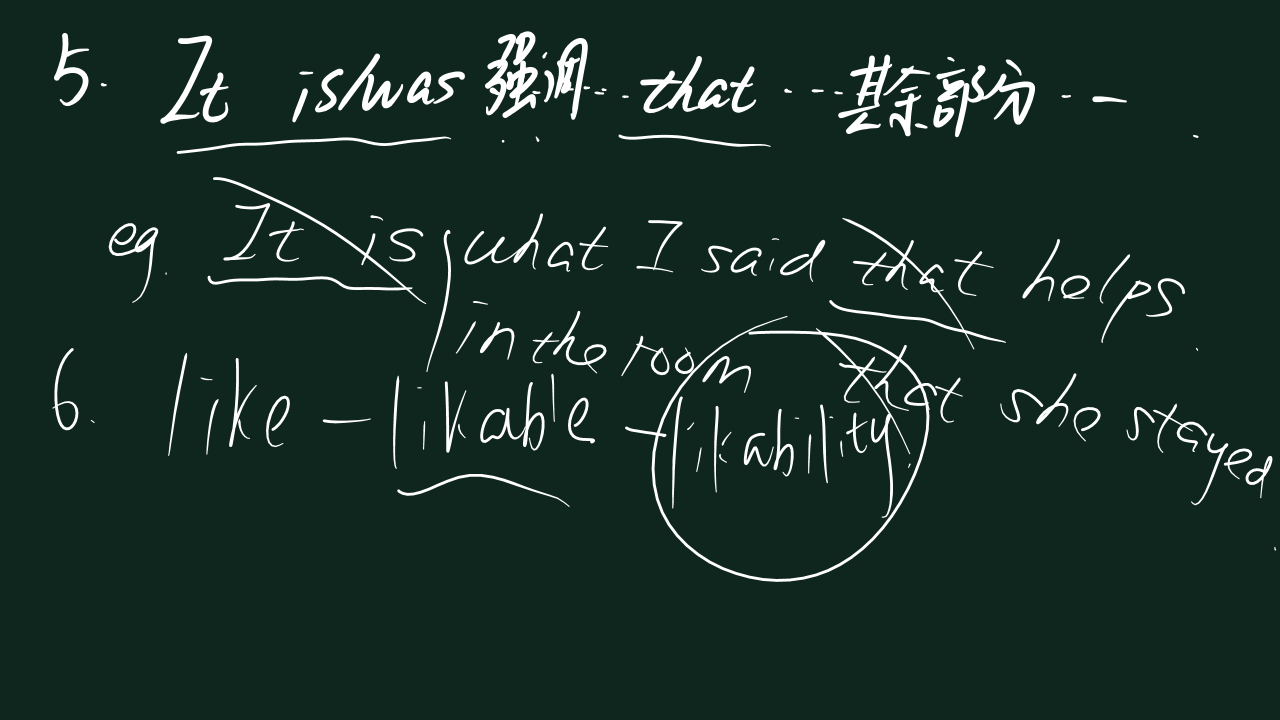 5. It is/was 强调... that ... 其余部分...
eg. It is what I said that helps
in the room that she stayed
6. like - likable - likability